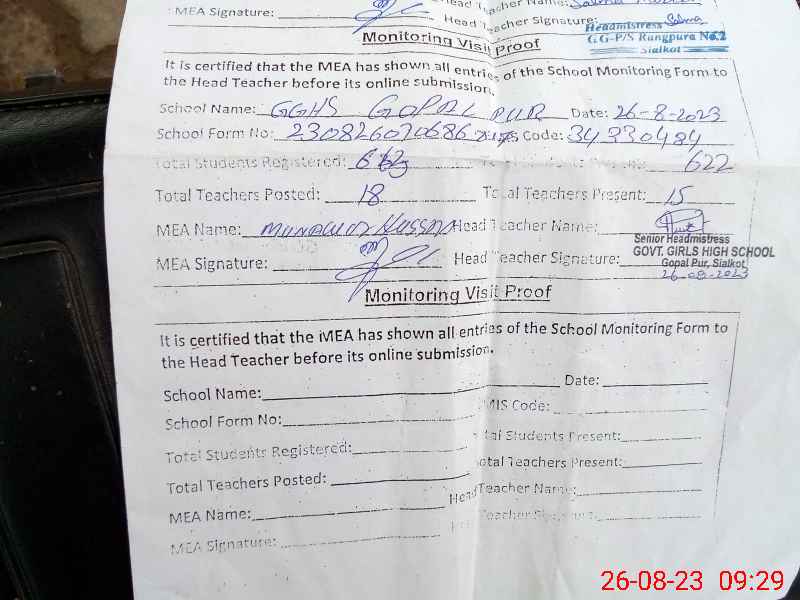 MEA Signature: Head Teacher Signature:
Headmistress
GG-P/S Rangpura No.2
Sialkot
Monitoring Visit Proof
It is certified that the MEA has shown all entries of the School Monitoring Form to
the Head Teacher before its online submission.
School Name: GGHS GOPAL PUR Date: 26-8-2023
School Form No: Code: 34330484
Total Students Registered: 622
Total Teachers Posted: 18 Total Teachers Present: 15
MEA Name: Head Teacher Name:
Senior Headmistress
GOVT. GIRLS HIGH SCHOOL
MEA Signature: Head Teacher Signature: Gopal Pur, Sialkot
26-08-2023
Monitoring Visit Proof
It is certified that the MEA has shown all entries of the School Monitoring Form to
the Head Teacher before its online submission.
School Name: Date:
School Form No: MIS Code:
Total Students Registered: Students Present:
Total Teachers Posted: Teachers Present:
MEA Name: Head Teacher Name:
MEA Signature: Teacher
26-08-23 09:29